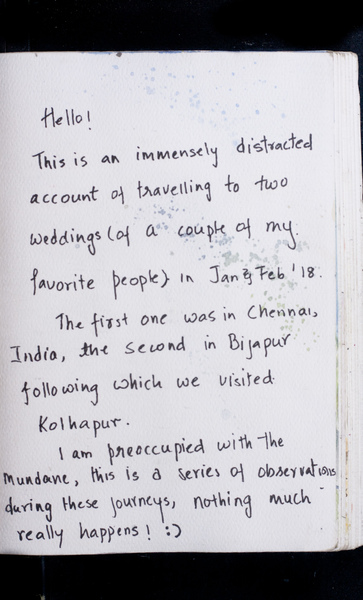 Hello!
This is an immensely distracted
account of travelling to two
weddings (of a couple of my
favorite people) in Jan & Feb '18.
The first one was in Chennai,
India, the second in Bijapur
following which we visited
Kolhapur.
I am preoccupied with the
mundane, this is a series of observations
during these journeys, nothing much
really happens! :)